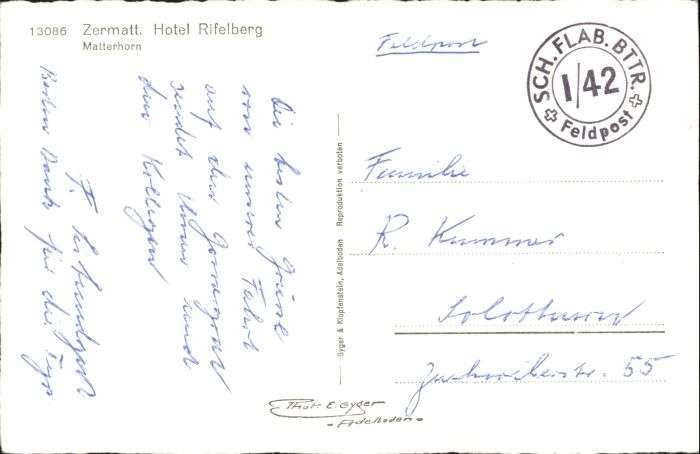 13086 Zermatt. Hotel Rifelberg
Matterhorn
Feldpost
SCH. FLAB. BTTR.
I/42
Feldpost
Die besten Grüsse
von unserer Fahrt
auf den Gornergrat
sendet Ihnen und
den Kollegen
F.
Besten Dank für die
Familie
R. Kummer
Solothurn
str. 55
Gyger & Klopfenstein, Adelboden Reproduktion verboten
Phot. E. Gyger
- Adelboden -